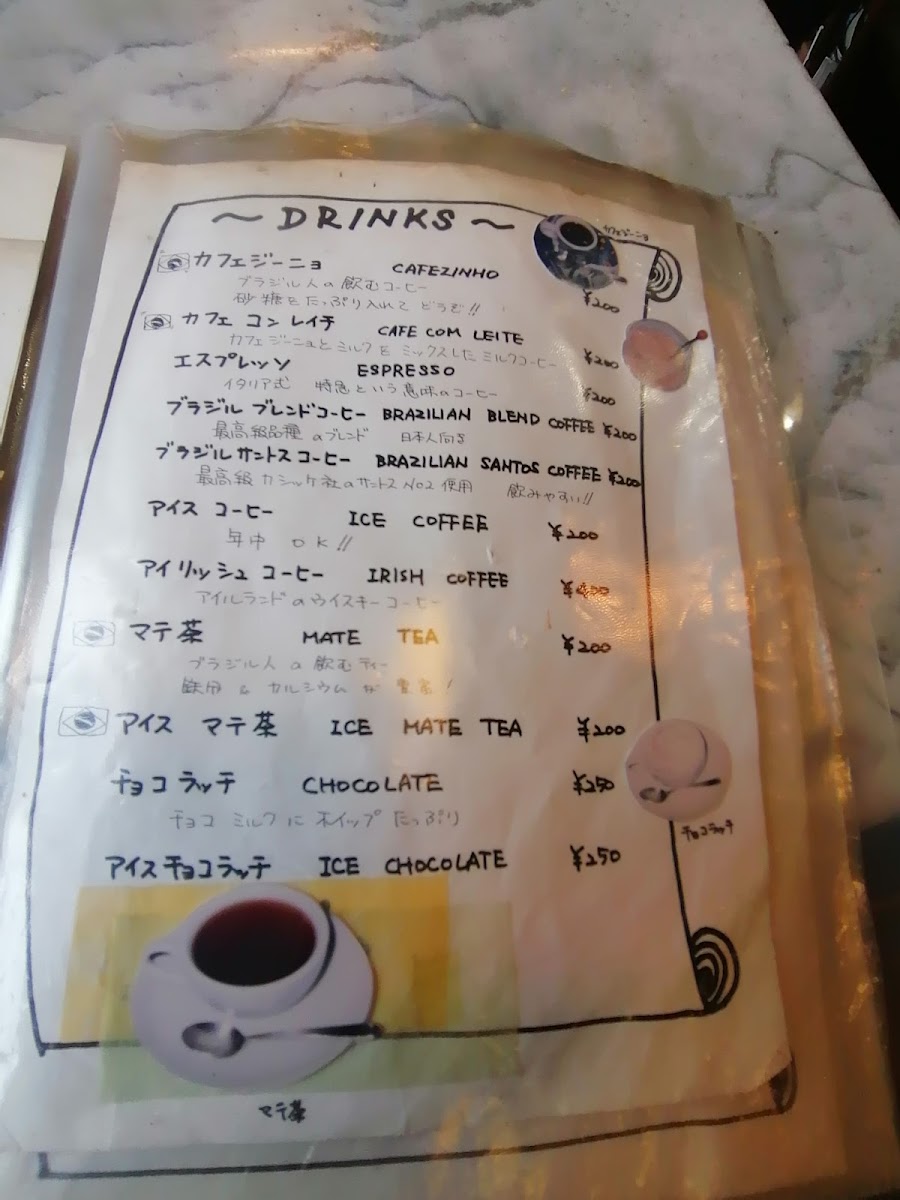 ～DRINKS～
カフェジーニョ
カフェジーニョ CAFEZINHO
ブラジル人の飲むコーヒー
砂糖をたっぷり入れてどうぞ!! ¥200
カフェ コン レイチ CAFE COM LEITE
カフェジーニョとミルクをミックスしたミルクコーヒー ¥200
エスプレッソ ESPRESSO
イタリア式 特急という意味のコーヒー ¥200
ブラジル ブレンドコーヒー BRAZILIAN BLEND COFFEE ¥200
最高級品種のブレンド 日本人向き
ブラジルサントスコーヒー BRAZILIAN SANTOS COFFEE ¥200
最高級カシッケ社のサントスNO2使用 飲みやすい!!
アイス コーヒー ICE COFFEE ¥200
年中 OK!!
アイリッシュ コーヒー IRISH COFFEE ¥400
アイルランドのウイスキーコーヒー
マテ茶 MATE TEA ¥200
ブラジル人の飲むティー
鉄分 & カルシウムが豊富!
アイス マテ茶 ICE MATE TEA ¥200
チョコラッチ CHOCOLATE ¥250
チョコミルクにホイップたっぷり
チョコラッチ
アイスチョコラッチ ICE CHOCOLATE ¥250
マテ茶